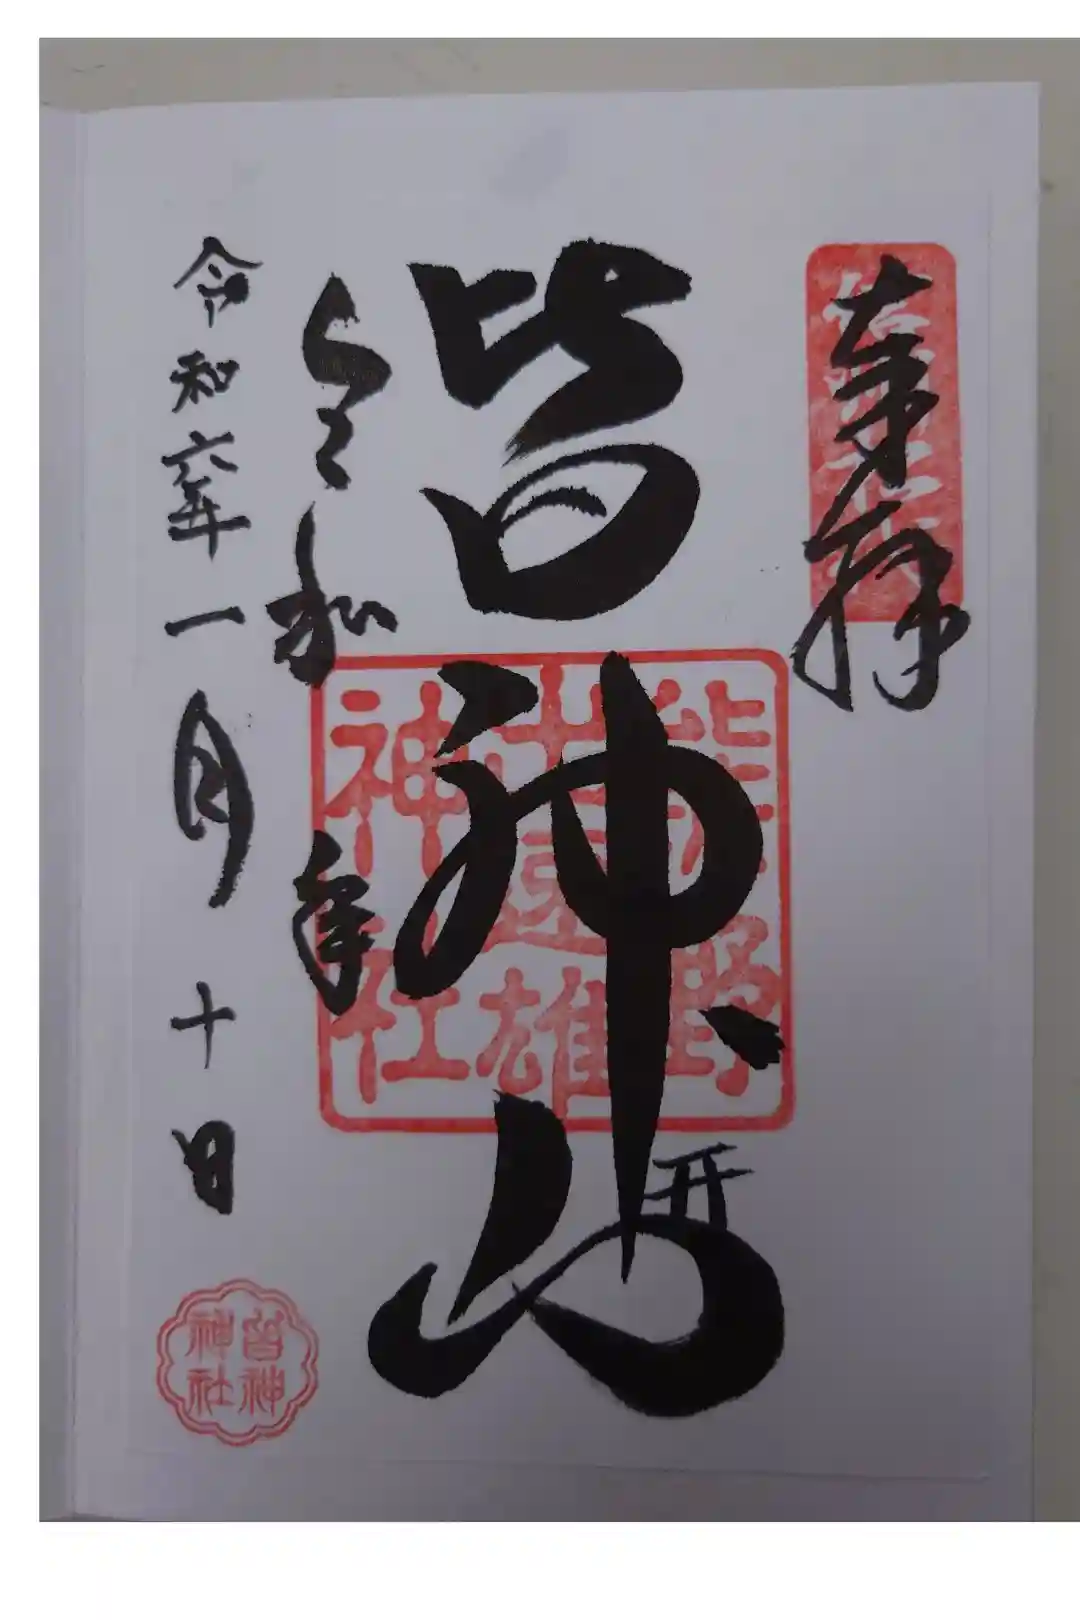 奉拝
皆神山
熊野
出速雄
神社
令和 年
令和六年一月十日
皆神
神社